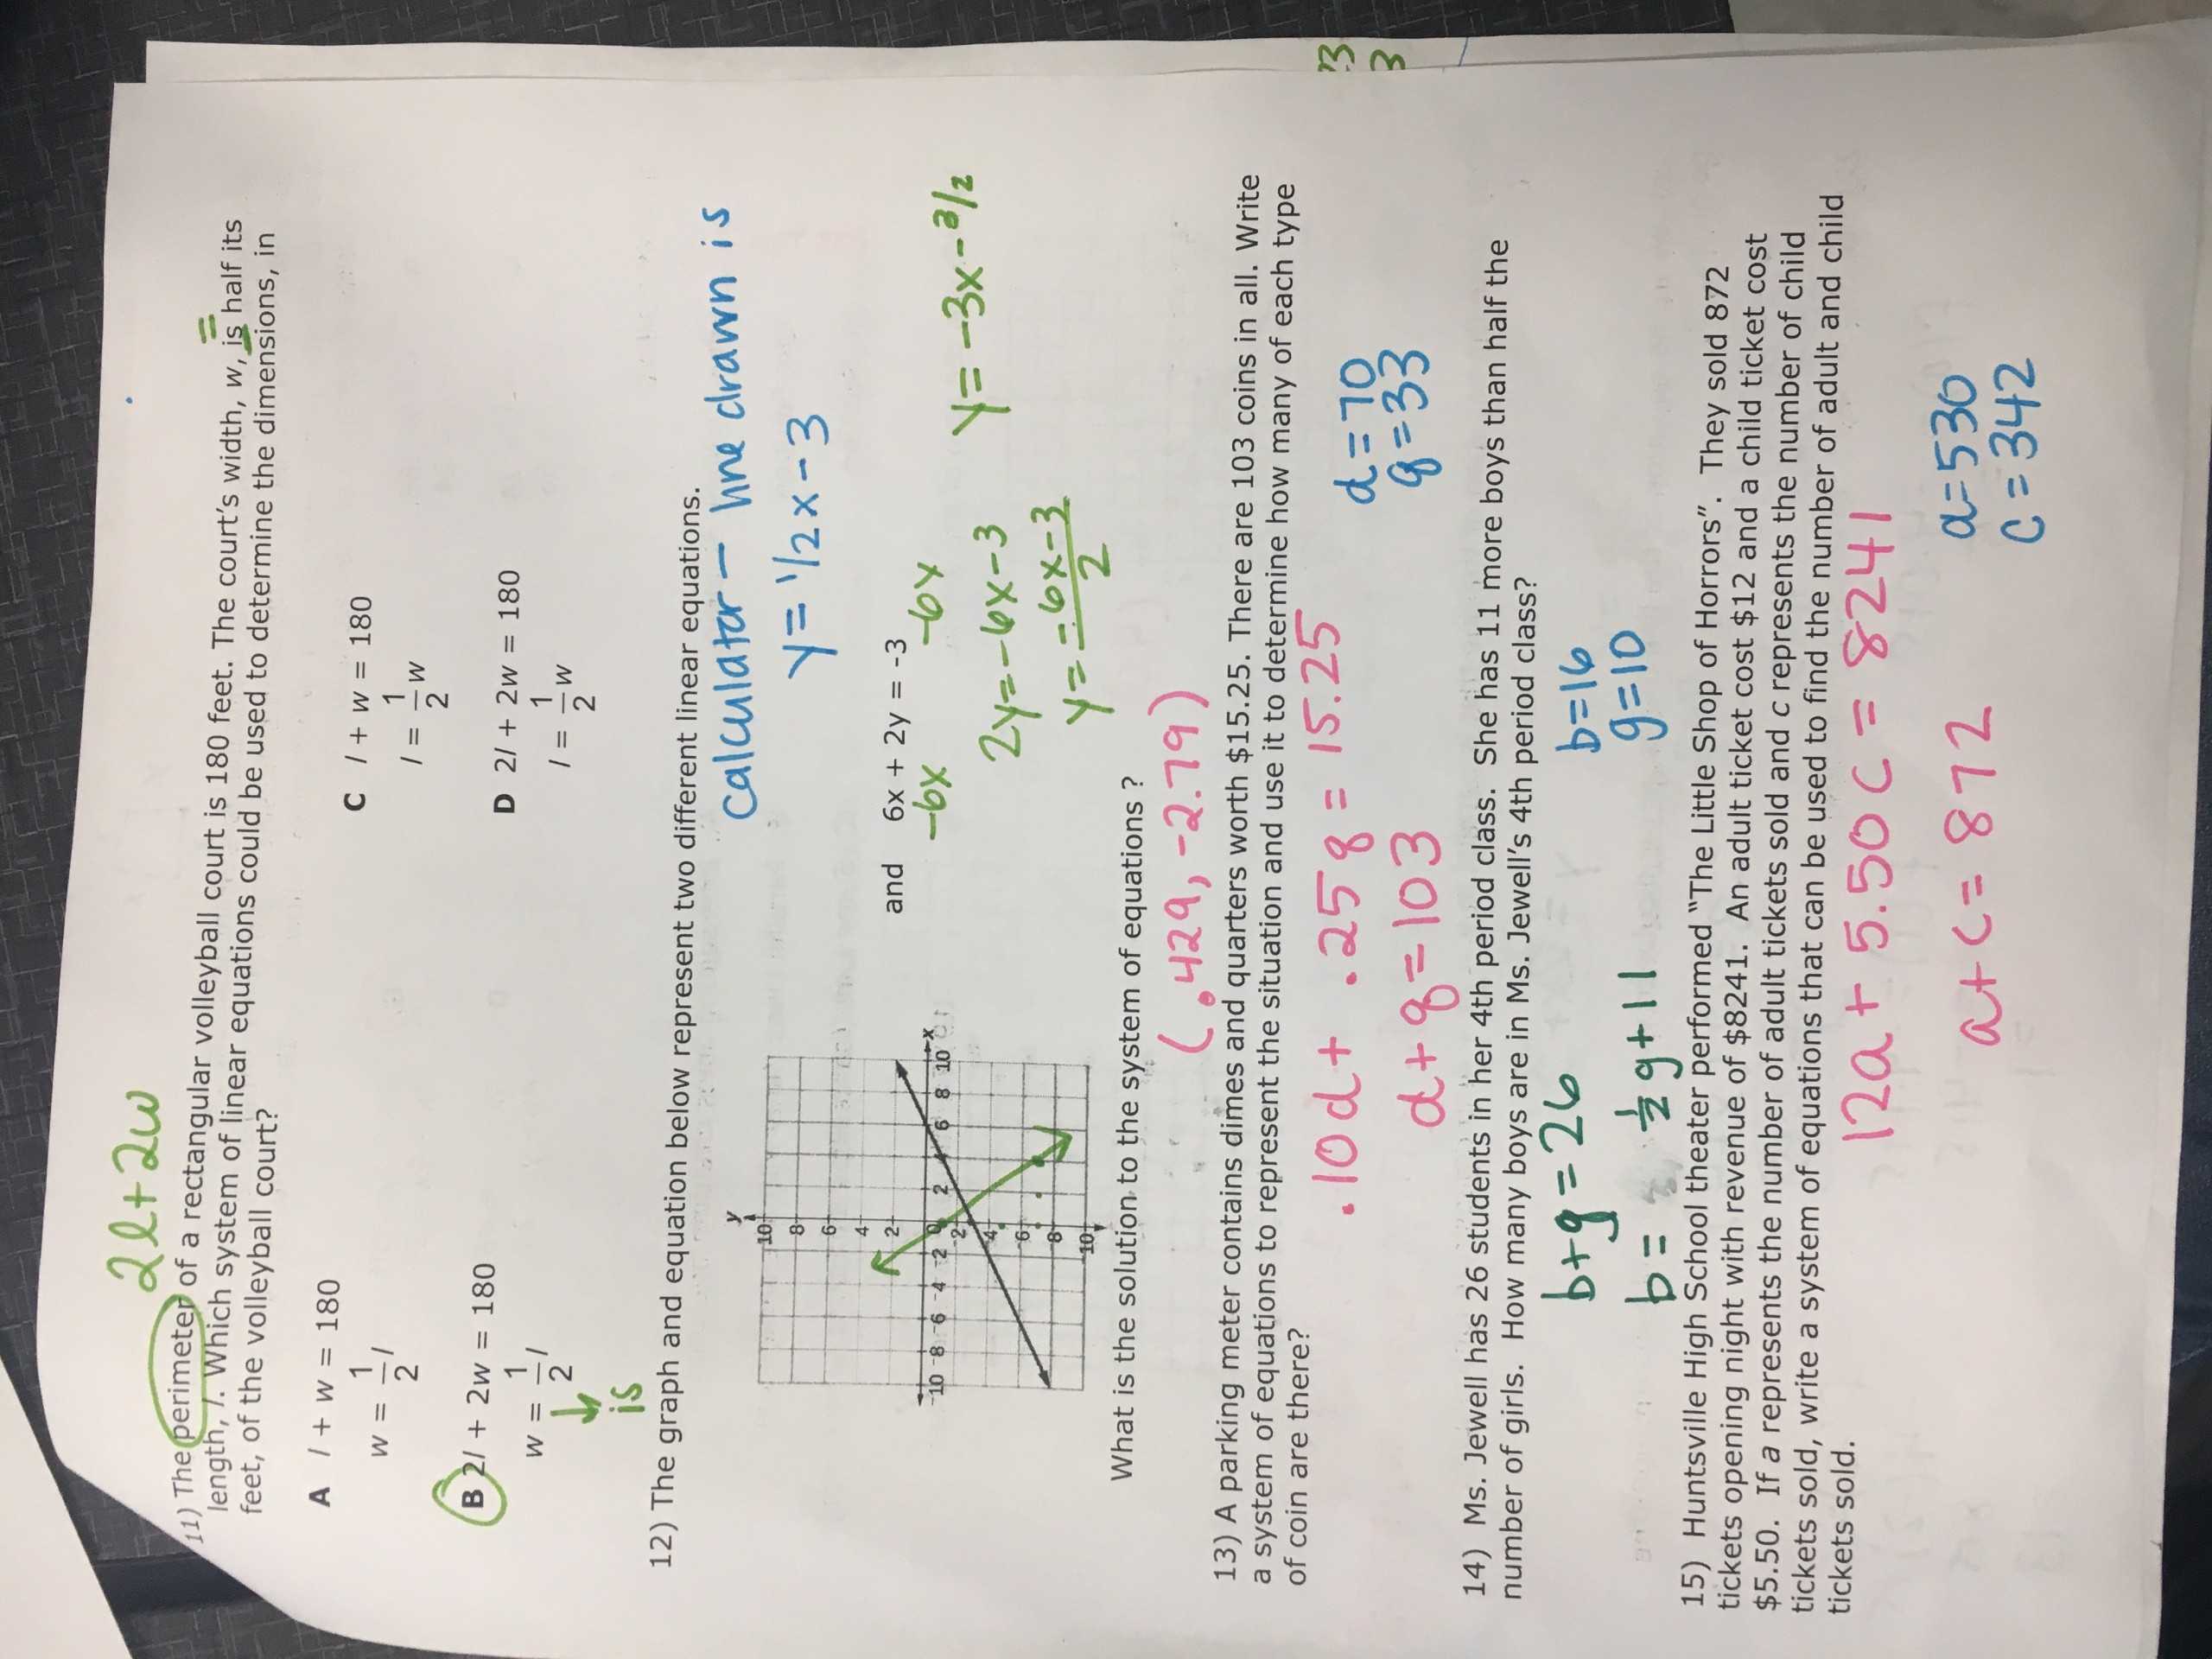 2l + 2w
11) The perimeter of a rectangular volleyball court is 180 feet. The court's width, w, is half its
=
length, l. Which system of linear equations could be used to determine the dimensions, in
feet, of the volleyball court?
A l + w = 180
w = 1/2 l
C l + w = 180
l = 1/2 w
B 2l + 2w = 180
w = 1/2 l
is
D 2l + 2w = 180
l = 1/2 w
12) The graph and equation below represent two different linear equations.
calculator - line drawn is
y = 1/2x - 3
y
10
8
6
4
2
-10 -8 -6 -4 -2 0 2 4 6 8 10 x
-2
-4
-6
-8
-10
and 6x + 2y = -3
-6x -6x
2y = -6x - 3
y = -6x - 3 / 2
y = -3x - 3/2
What is the solution to the system of equations ?
(.429, -2.79)
13) A parking meter contains dimes and quarters worth $15.25. There are 103 coins in all. Write
a system of equations to represent the situation and use it to determine how many of each type
of coin are there?
.10d + .25q = 15.25
d + q = 103
d = 70
q = 33
3
3
14) Ms. Jewell has 26 students in her 4th period class. She has 11 more boys than half the
number of girls. How many boys are in Ms. Jewell's 4th period class?
b + g = 26
b = 1/2 g + 11
b = 16
g = 10
15) Huntsville High School theater performed "The Little Shop of Horrors". They sold 872
tickets opening night with revenue of $8241. An adult ticket cost $12 and a child ticket cost
$5.50. If a represents the number of adult tickets sold and c represents the number of child
tickets sold, write a system of equations that can be used to find the number of adult and child
tickets sold.
12a + 5.50c = 8241
a + c = 872
a = 530
c = 342